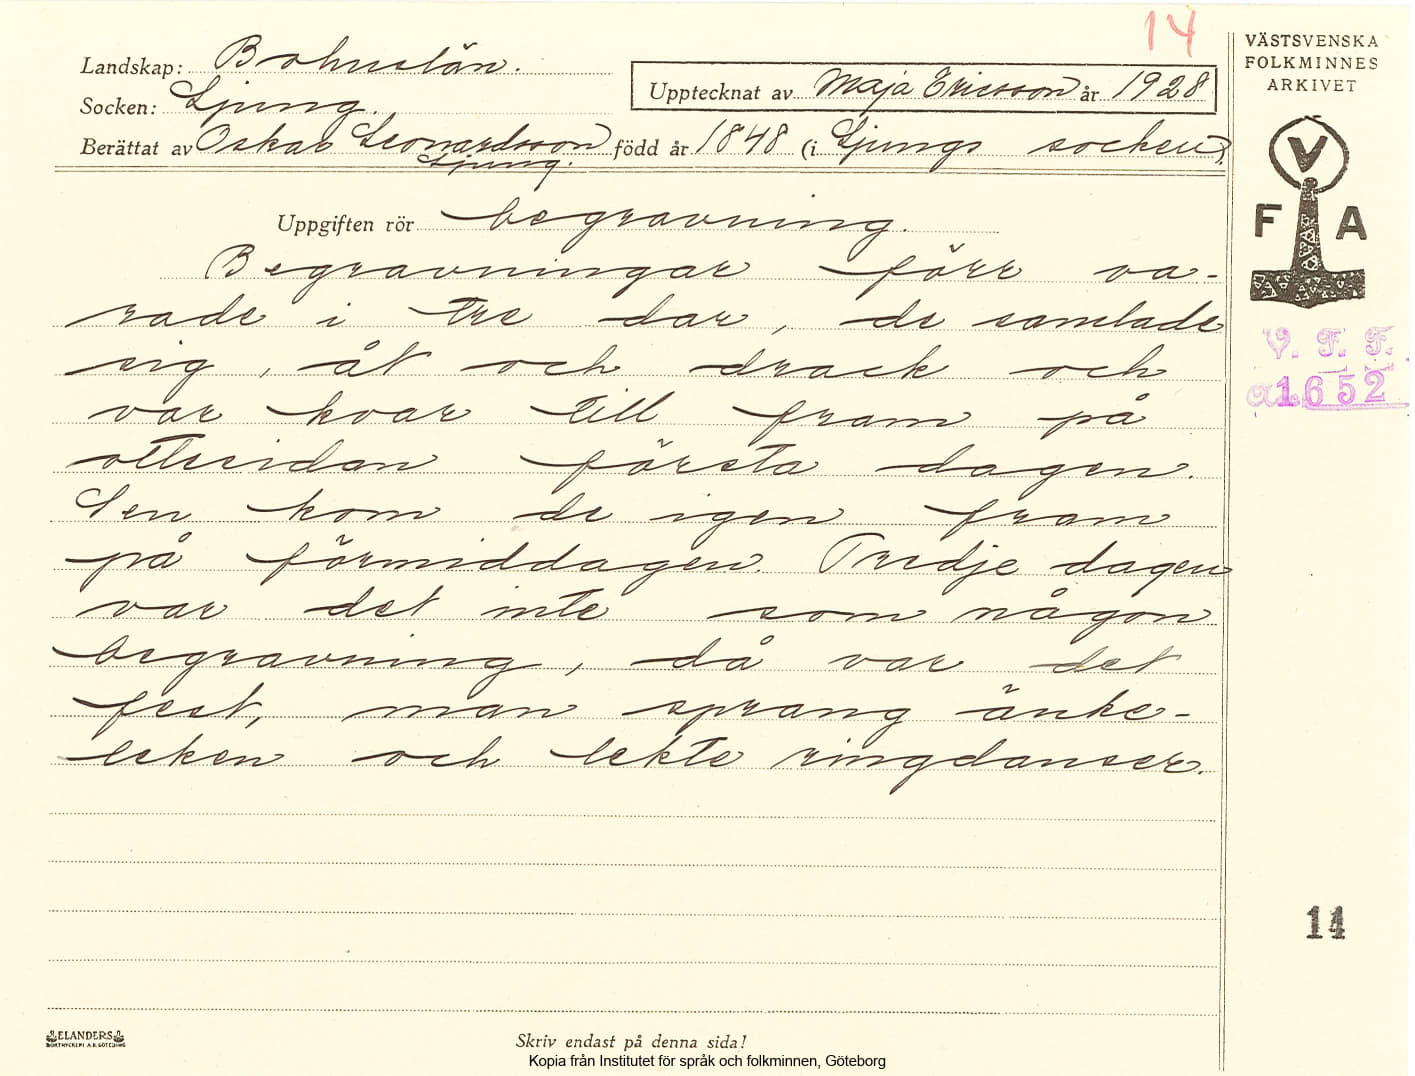 14
Landskap: Bohuslän.
Socken: Ljung.
Upptecknat av Maja Ericsson år 1928
Berättat av Oskar Leonardsson född år 1848 (i Ljungs socken).
Ljung.
VÄSTSVENSKA
FOLKMINNES
ARKIVET
V
F A
V. F. F.
1652
Uppgiften rör begravning.
Begravningar förr va-
rade i tre dar, de samlade
sig, åt och drack och
var kvar till fram på
ottesidan första dagen.
Sen kom de igen fram
på förmiddagen. Tredje dagen
var det inte som någon
begravning, då var det
fest, man sprang änke-
leken och lekte ringdanser.
14
ELANDERS
BOKTRYCKERI A.B. GÖTEBORG
Skriv endast på denna sida!
Kopia från Institutet för språk och folkminnen, Göteborg